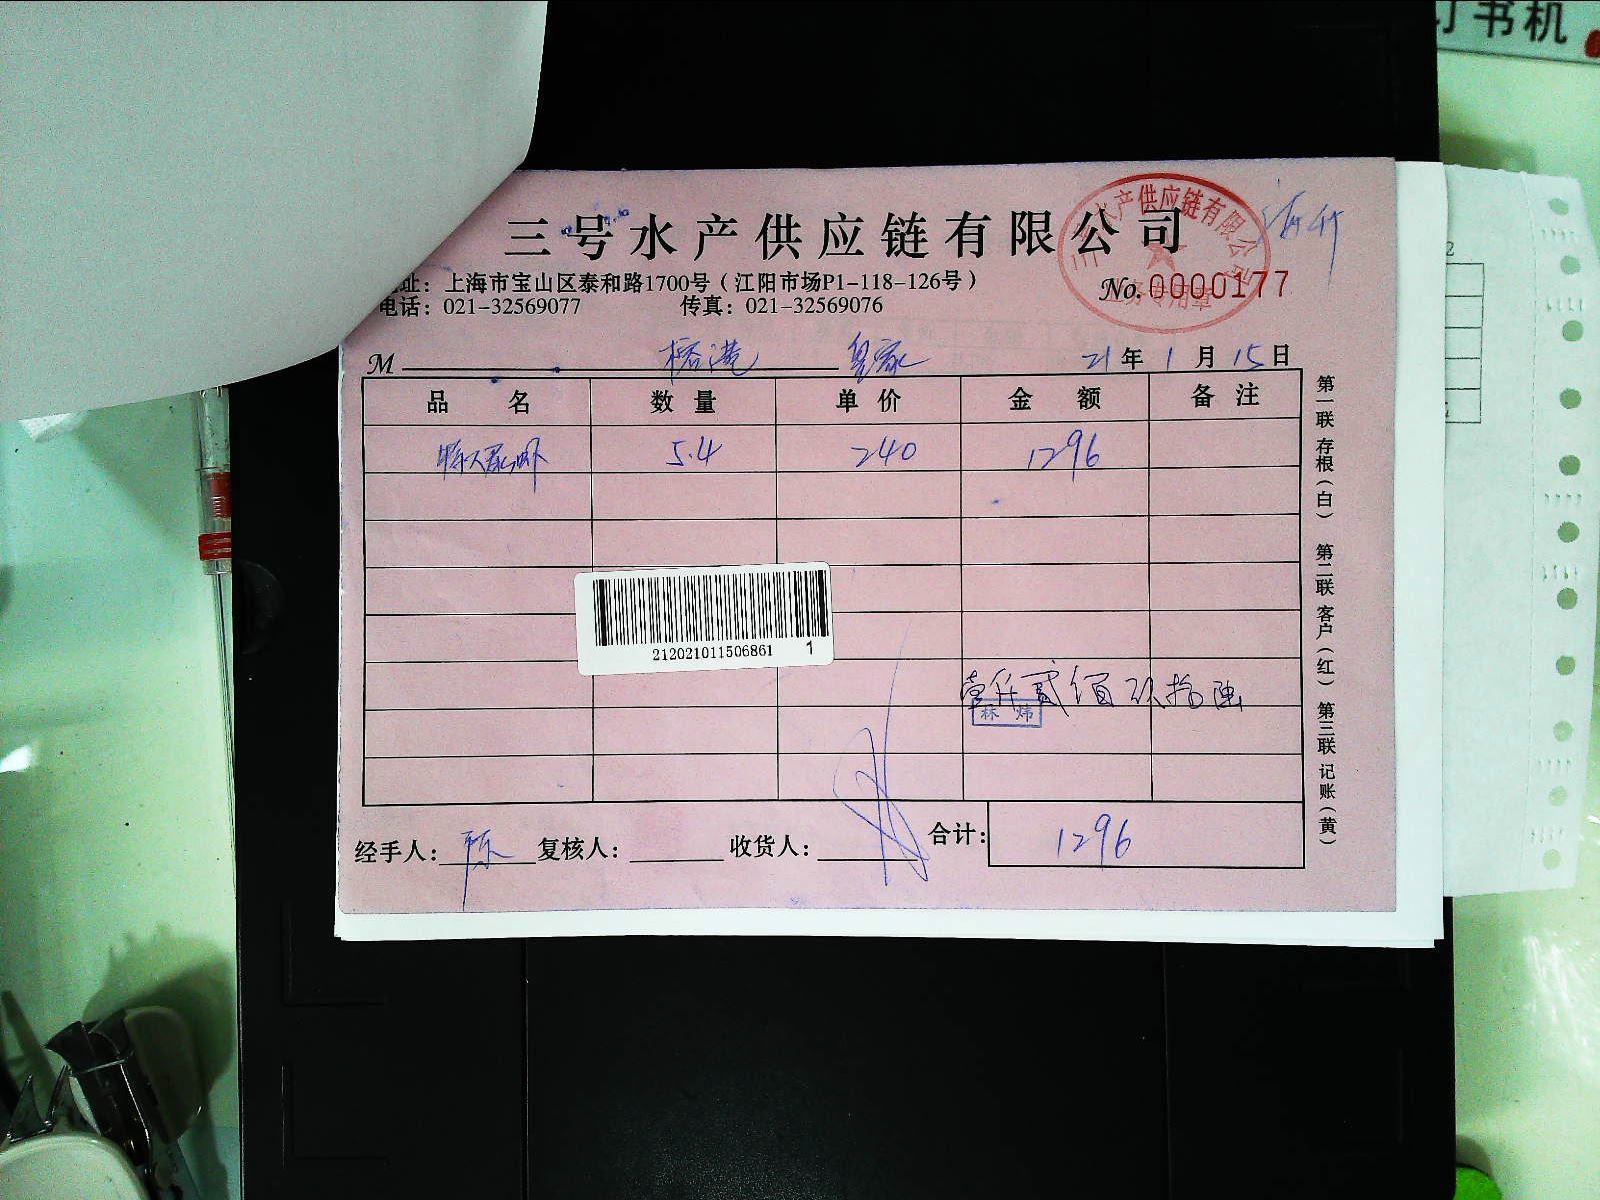 订书机
三号水产供应链有限公司
三号水产供应链有限公司
业务专用章
地址：上海市宝山区泰和路1700号（江阳市场P1-118-126号）
No.0000177
电话：021-32569077 传真：021-32569076
M 21年1月15日
品名 数量 单价 金额 备注
5.4 240 1296
212021011506861 1
壹仟贰佰玖拾陆
林炜
经手人：陈 复核人： 收货人： 合计：1296
第一联 存根（白） 第二联 客户（红） 第三联 记账（黄）